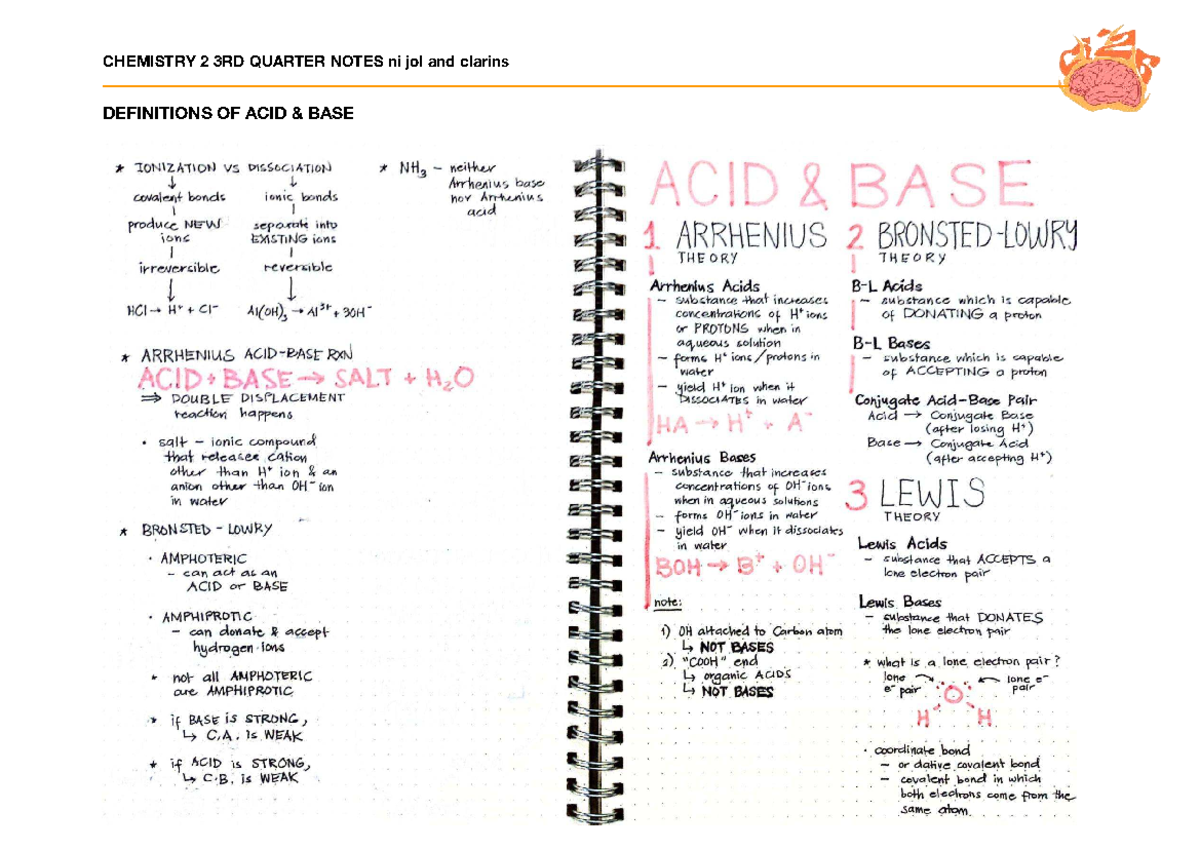 CHEMISTRY 2 3RD QUARTER NOTES ni jol and clarins
DEFINITIONS OF ACID & BASE
* IONIZATION VS DISSOCIATION
↓ ↓
covalent bonds ionic bonds
produce NEW separate into
ions EXISTING ions
irreversible reversible
↓ ↓
HCl → H⁺ + Cl⁻ Al(OH)₃ → Al³⁺ + 3OH⁻
* ARRHENIUS ACID-BASE RXN
ACID + BASE → SALT + H₂O
⇒ DOUBLE DISPLACEMENT
reaction happens
• salt - ionic compound
that releases cation
other than H⁺ ion & an
anion other than OH⁻ ion
in water
* BRONSTED - LOWRY
• AMPHOTERIC
- can act as an
ACID or BASE
• AMPHIPROTIC
- can donate & accept
hydrogen ions
* not all AMPHOTERIC
are AMPHIPROTIC
* if BASE is STRONG,
↳ C.A. is WEAK
* if ACID is STRONG,
↳ C.B. is WEAK
* NH₃ - neither
Arrhenius base
nor Arrhenius
acid
ACID & BASE
1 ARRHENIUS
THEORY
Arrhenius Acids
- substance that increases
concentrations of H⁺ ions
or PROTONS when in
aqueous solution
- forms H⁺ ions/protons in
water
- yield H⁺ ion when it
DISSOCIATES in water
HA → H⁺ + A⁻
Arrhenius Bases
- substance that increases
concentrations of OH⁻ ions
when in aqueous solutions
- forms OH⁻ ions in water
- yield OH⁻ when it dissociates
in water
BOH → B⁺ + OH⁻
note:
1) OH attached to Carbon atom
↳ NOT BASES
2) "COOH" end
↳ organic ACIDS
↳ NOT BASES
2 BRONSTED-LOWRY
THEORY
B-L Acids
- substance which is capable
of DONATING a proton
B-L Bases
- substance which is capable
of ACCEPTING a proton
Conjugate Acid-Base Pair
Acid → Conjugate Base
(after losing H⁺)
Base → Conjugate Acid
(after accepting H⁺)
3 LEWIS
THEORY
Lewis Acids
- substance that ACCEPTS a
lone electron pair
Lewis Bases
- substance that DONATES
the lone electron pair
* what is a lone electron pair?
lone lone e⁻
e⁻ pair pair
O
H H
• coordinate bond
- or dative covalent bond
- covalent bond in which
both electrons come from the
same atom